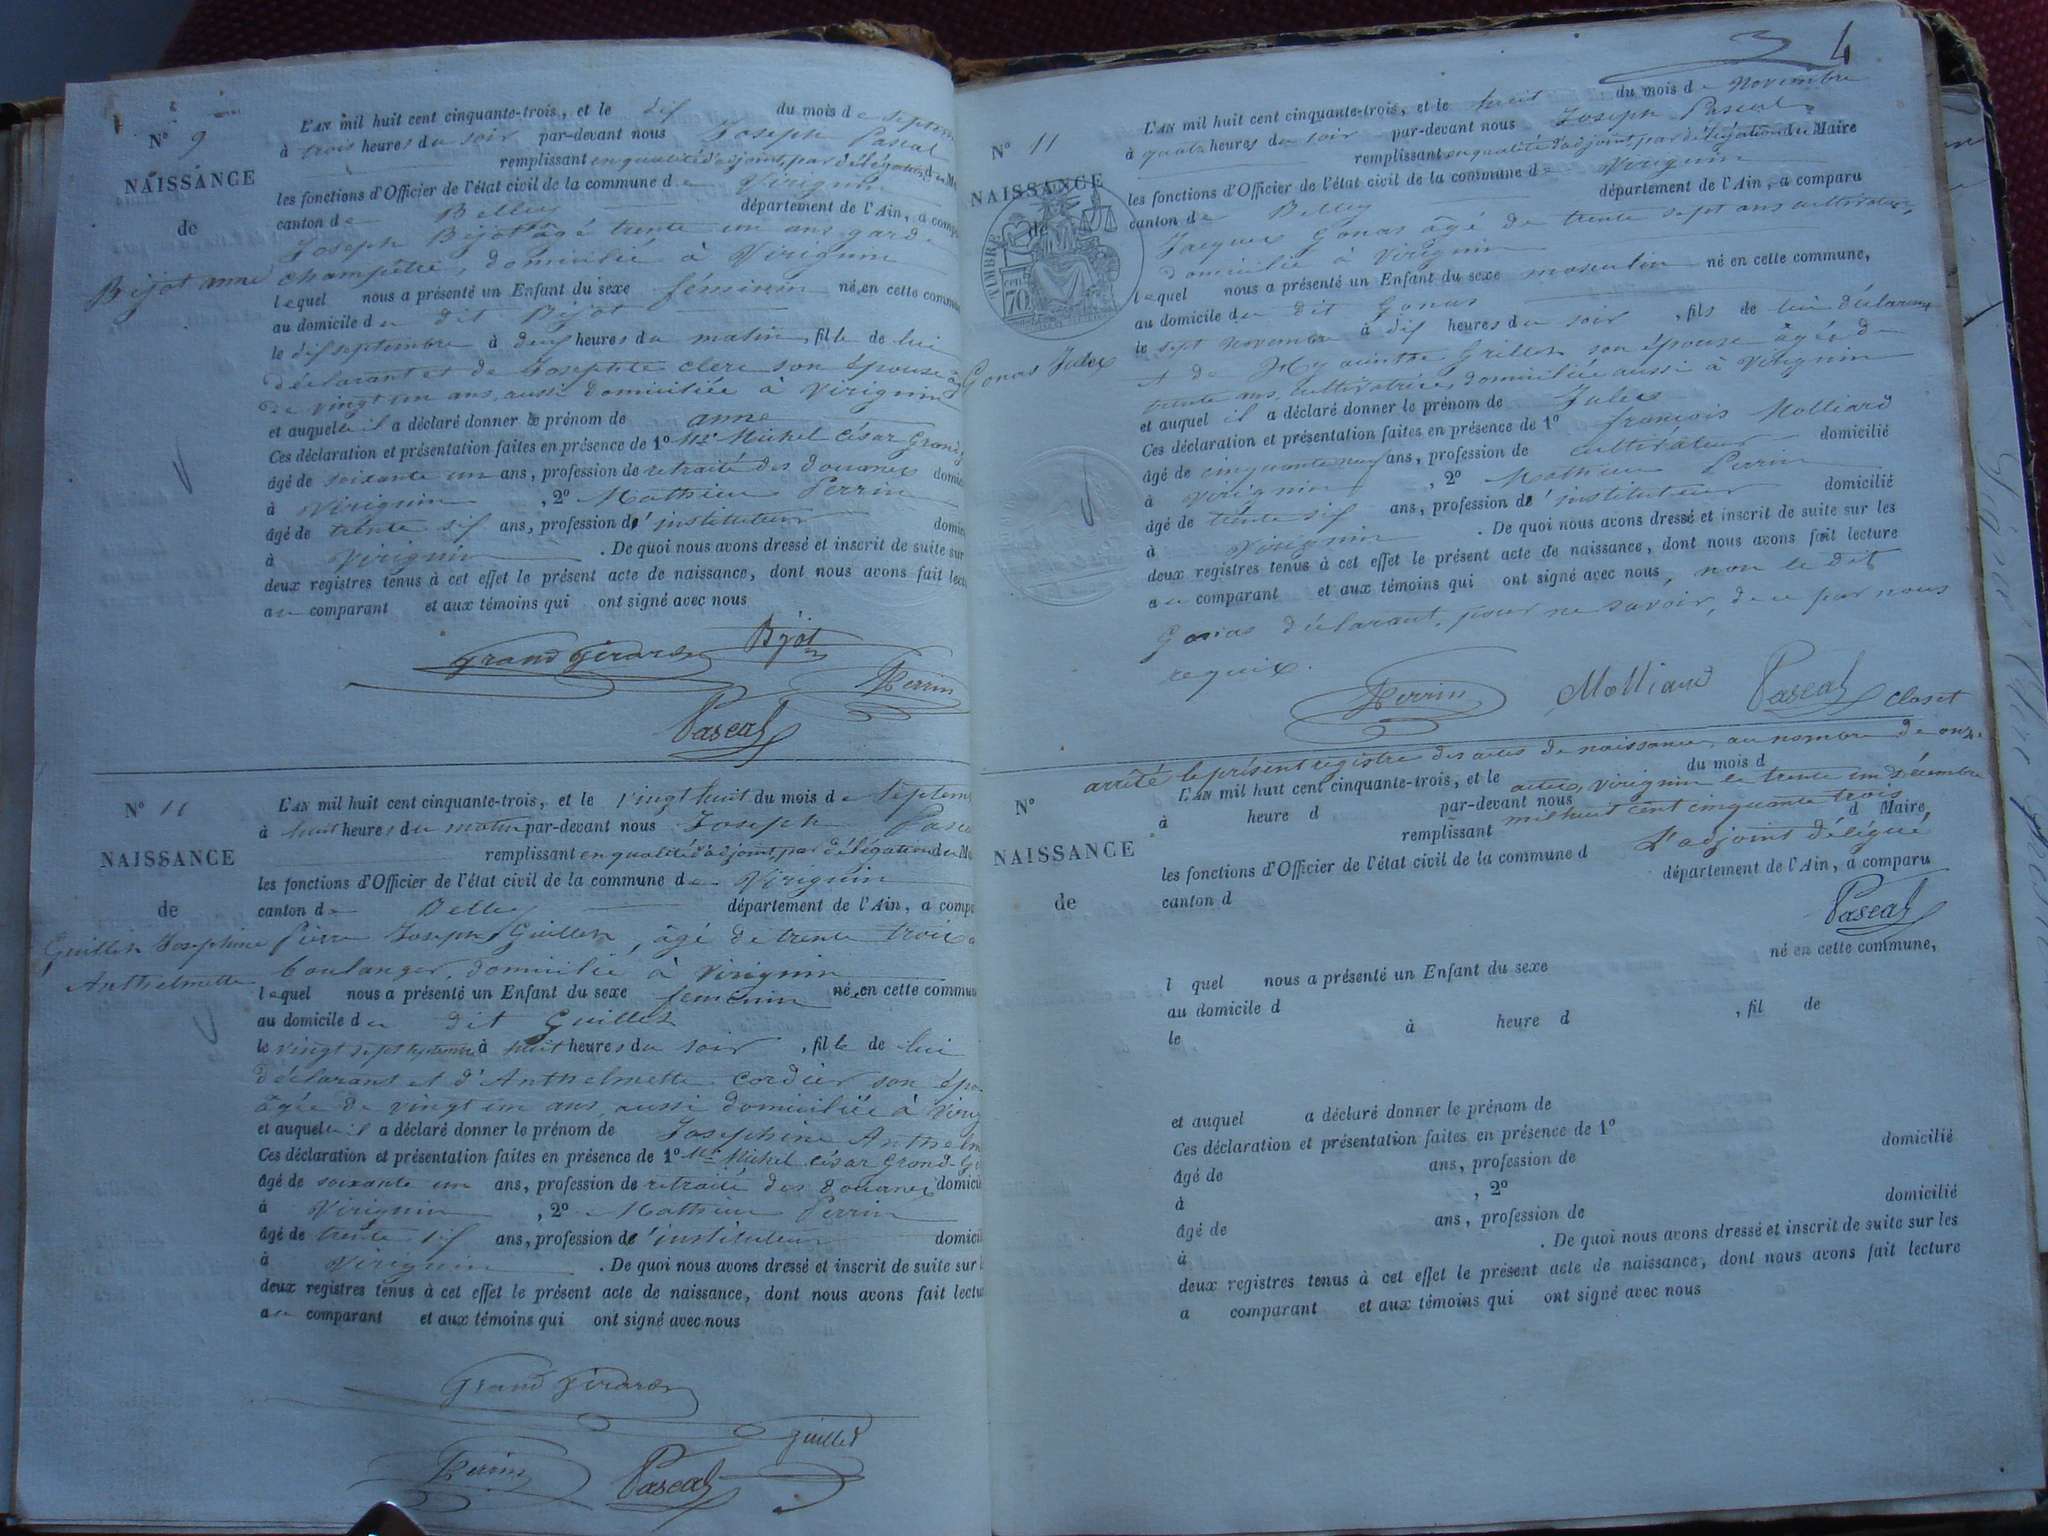 N° 9
NAISSANCE
de
Bijot anne
L'AN mil huit cent cinquante-trois, et le dix du mois de septem
à trois heures du soir par-devant nous Joseph Pascal
remplissant en qualité d'adjoint, par délégation du M
les fonctions d'Officier de l'état civil de la commune de Virignin
canton de Belley département de l'Ain, a comp
Joseph Bijot âgé trente un ans, garde
champêtre, domicilié à Virignin
lequel nous a présenté un Enfant du sexe féminin né en cette commu
au domicile du dit Bijot
le dix septembre à deux heures du matin, fille de lui
déclarant et de Josephte clerc son épouse
de vingt un ans, aussi domiciliée à Virignin
et auquel il a déclaré donner le prénom de anne
Ces déclaration et présentation faites en présence de 1° Mr Michel César Grand
âgé de soixante un ans, profession de retraité des douanes domic
à Virignin, 2° Mathieu Perrin
âgé de trente six ans, profession d'instituteur domic
à Virignin. De quoi nous avons dressé et inscrit de suite sur
deux registres tenus à cet effet le présent acte de naissance, dont nous avons fait lectu
au comparant et aux témoins qui ont signé avec nous
Grand Girard Bijot
Perrin
Pascal
N° 11
NAISSANCE
de
Guillet Josephine
Anthelmette
L'AN mil huit cent cinquante-trois, et le vingt huit du mois de Septem
à huit heures du matin par-devant nous Joseph Pasca
remplissant en qualité d'adjoint, par délégation du M
les fonctions d'Officier de l'état civil de la commune de Virignin
canton de Belley département de l'Ain, a compa
Pierre Joseph Guillet, âgé de trente trois a
boulanger, domicilié à Virignin
lequel nous a présenté un Enfant du sexe feminin né en cette commun
au domicile du dit Guillet
le vingt sept à huit heures du soir, fille de lui
déclarant et d'Anthelmette Cordier son épou
âgée de vingt un ans, aussi domiciliée à Virig
et auquel il a déclaré donner le prénom de Josephine Anthelm
Ces déclaration et présentation faites en présence de 1° Mr Michel César Grand-Gi
âgé de soixante un ans, profession de retraité des douanes domici
à Virignin, 2° Mathieu Perrin
âgé de trente six ans, profession d'instituteur domici
à Virignin. De quoi nous avons dressé et inscrit de suite sur l
deux registres tenus à cet effet le présent acte de naissance, dont nous avons fait lectu
au comparant et aux témoins qui ont signé avec nous
Grand Girard
Guillet
Perrin Pascal
4
N° 11
NAISSANCE
de
TIMBRE
70
Gonas Jules
L'AN mil huit cent cinquante-trois, et le huit du mois de Novembre
à quatre heures du soir par-devant nous Joseph Pascal
remplissant en qualité d'adjoint, par délégation du Maire
les fonctions d'Officier de l'état civil de la commune de Virignin
canton de Belley département de l'Ain, a comparu
Jacques Gonas âgé de trente sept ans cultivateur,
domicilié à Virignin
lequel nous a présenté un Enfant du sexe masculin né en cette commune,
au domicile du dit Gonas
le sept novembre à dix heures du soir, fils de lui déclarant
et de Hyacinthe Grillet son épouse âgée de
trente ans, cultivatrice, domiciliée aussi à Virignin
et auquel il a déclaré donner le prénom de Jules
Ces déclaration et présentation faites en présence de 1° françois Molliard
âgé de cinquante neuf ans, profession de cultivateur domicilié
à Virignin, 2° Mathieu Perrin
âgé de trente six ans, profession d'instituteur domicilié
à Virignin. De quoi nous avons dressé et inscrit de suite sur les
deux registres tenus à cet effet le présent acte de naissance, dont nous avons fait lecture
au comparant et aux témoins qui ont signé avec nous, non le dit
Gonas déclarant, pour ne savoir, de ce par nous
requis.
Perrin Molliard Pascal
Clos et
arrêté le présent registre des actes de naissance, au nombre de onze
actes, Virignin le trente un Décembre
mil huit cent cinquante trois
L'adjoint délégué
Pascal
N°
NAISSANCE
de
L'AN mil huit cent cinquante-trois, et le du mois d
à heure d par-devant nous
remplissant d Maire
les fonctions d'Officier de l'état civil de la commune d
canton d département de l'Ain, a comparu
l quel nous a présenté un Enfant du sexe né en cette commune,
au domicile d
le à heure d , fil de
et auquel a déclaré donner le prénom de
Ces déclaration et présentation faites en présence de 1°
âgé de ans, profession de domicilié
à , 2°
âgé de ans, profession de domicilié
à . De quoi nous avons dressé et inscrit de suite sur les
deux registres tenus à cet effet le présent acte de naissance, dont nous avons fait lecture
a comparant et aux témoins qui ont signé avec nous